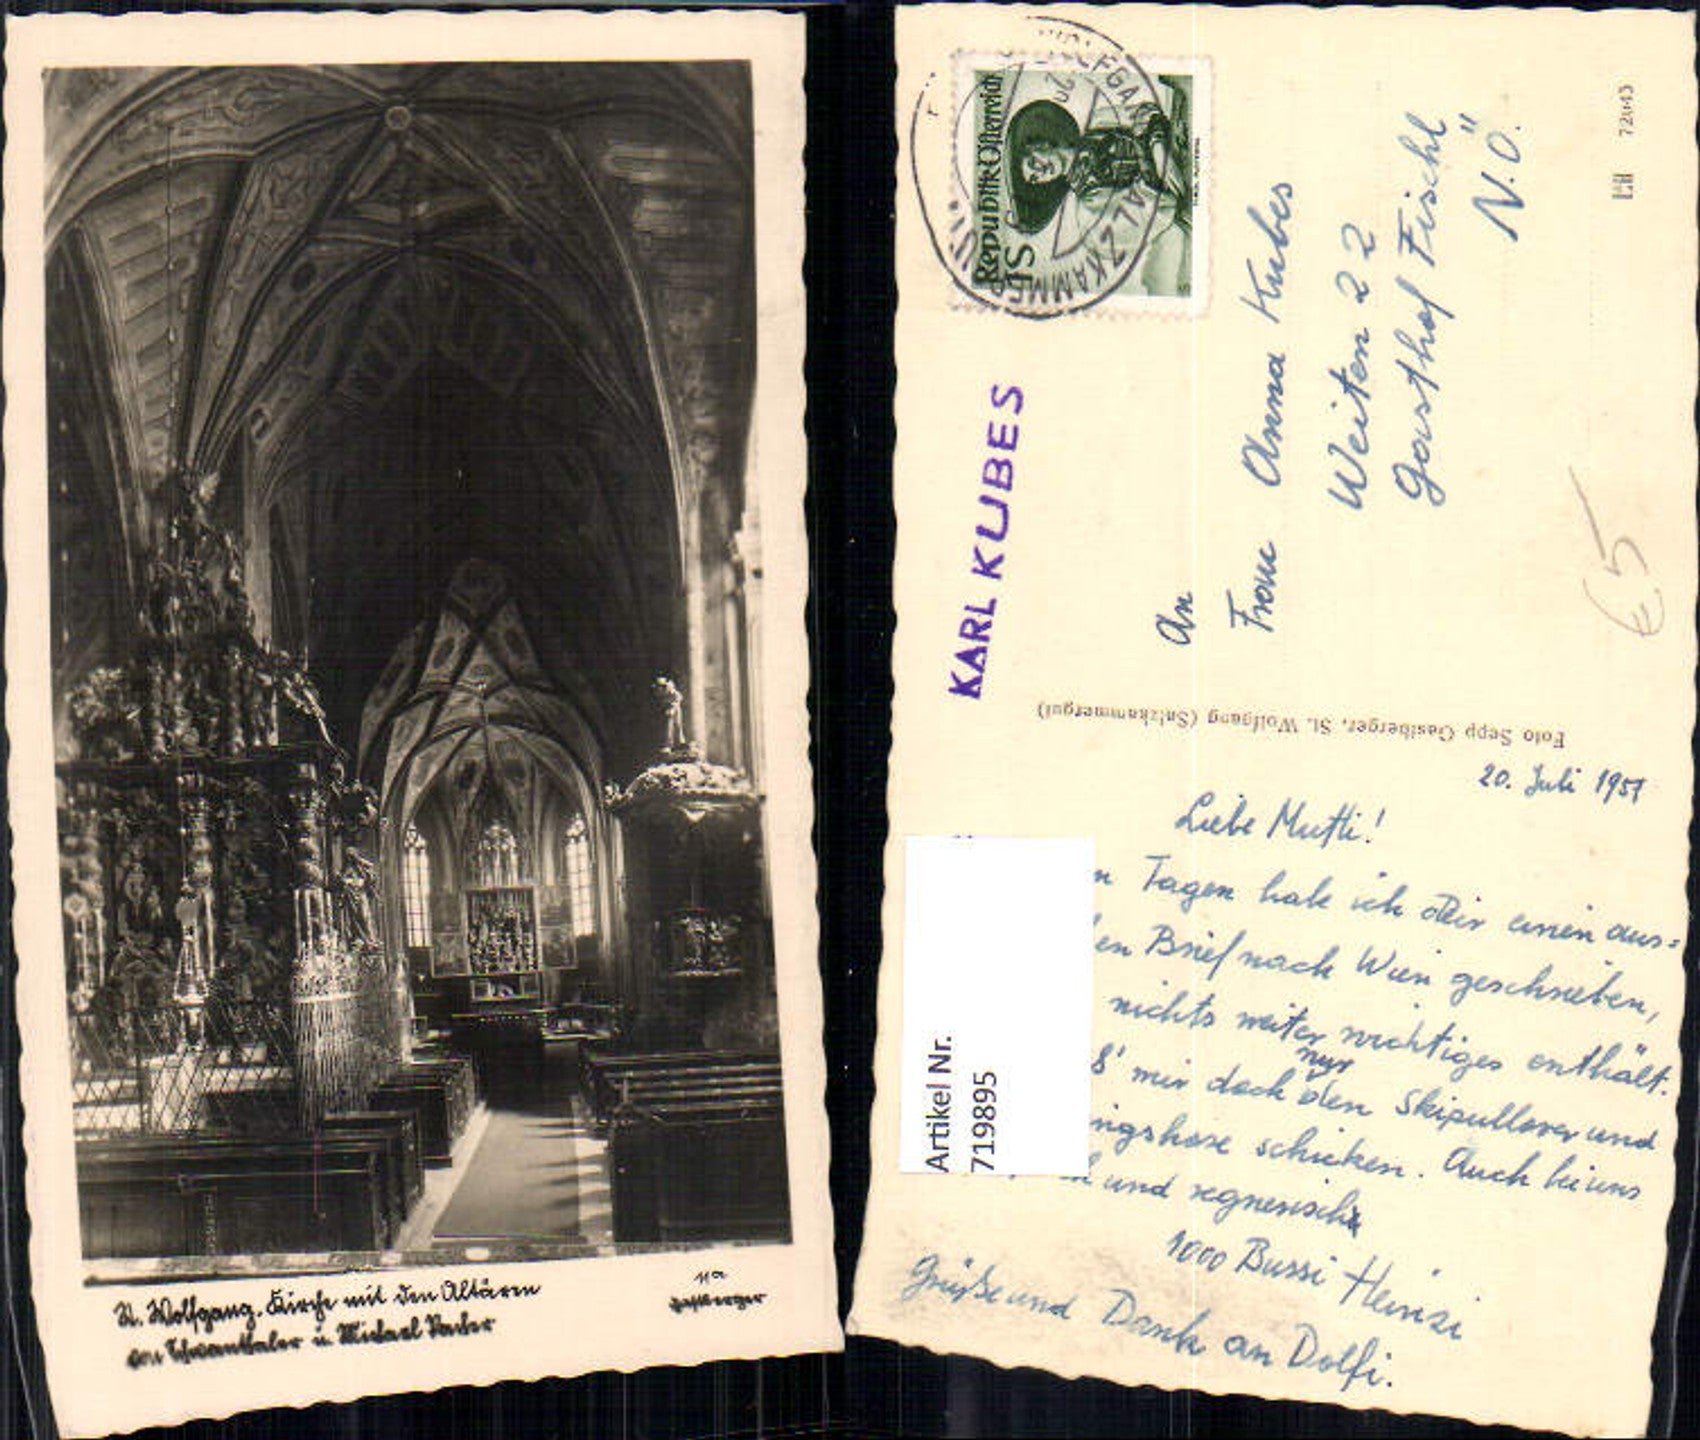 St. Wolfgang. Kirche mit den Altären
von Schwanthaler u. Michael Pacher
11a
Gastberger
WOLFGANG
SALZKAMMERGUT
Republik Österreich
1S
KARL KUBES
An
Frau Anna Kubes
Weiten 22
Gasthof Fischl
N.Ö.
72043
€5
Foto Sepp Gastberger, St. Wolfgang (Salzkammergut)
20. Juli 1951
Liebe Mutti!
n Tagen hab ich dir einen aus=
en Brief nach Wien geschrieben,
nichts weiter wichtiges enthält.
ß' mir doch nur den Skipullover und
ingshose schicken. Auch bei uns
und regnerisch
1000 Bussi Heinzi
Grüße und Dank an Dolfi.
Artikel Nr.
719895